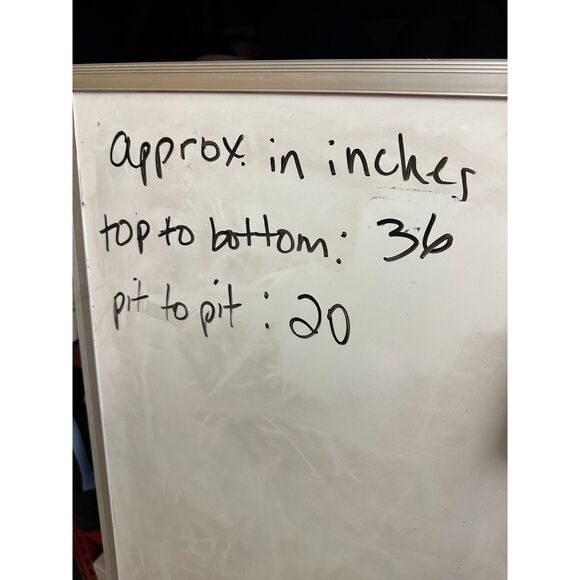 approx. in inches
top to bottom: 36
pit to pit: 20